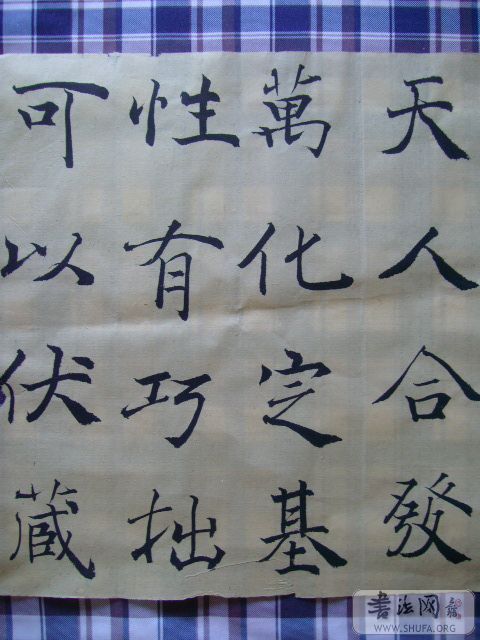 天人合發
萬化定基
性有巧拙
可以伏藏
書法网
WWW.SHUFA.ORG